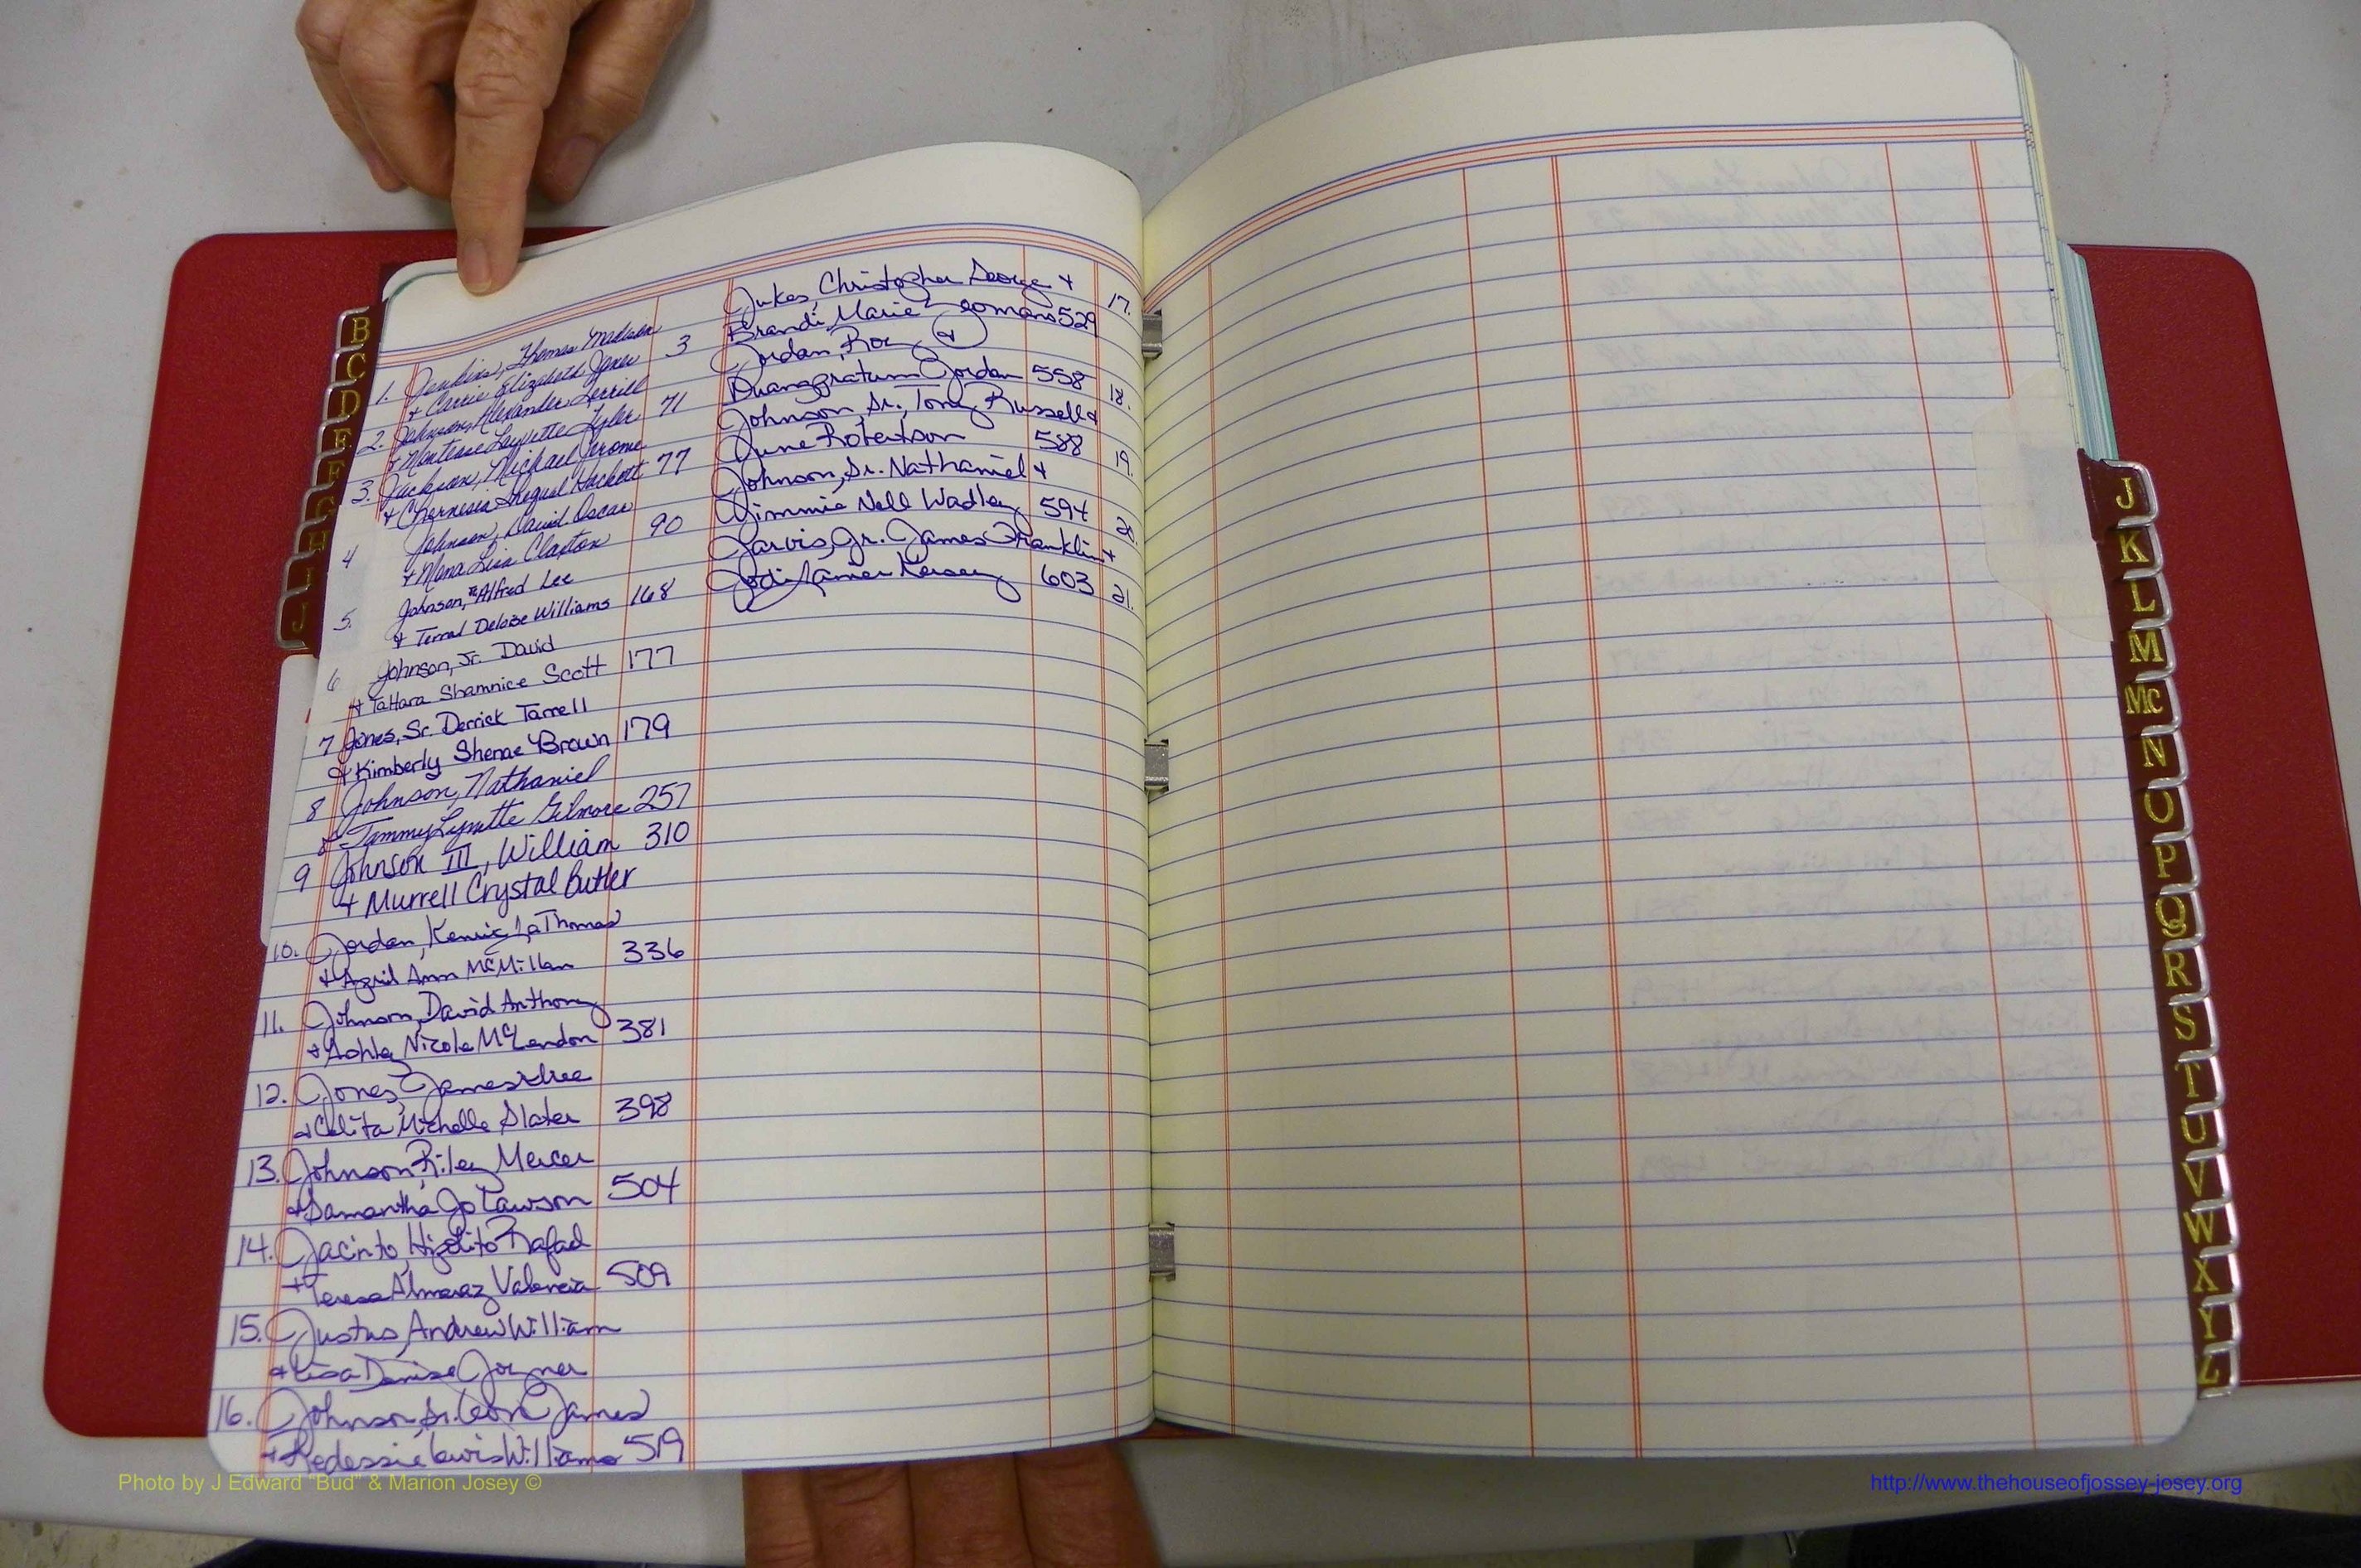 1. Jenkins, Thomas Madison
+ Carrie Elizabeth Jones 3
2. Johnson, Alexander Terrill
+ Montease Layvette Tyler 71
3. Jackson, Michael Jerome
+ Chernesia Shequal Hackett 77
4 Johnson, David Oscar
+ Mona Lisa Claxton 90
5. Johnson, Alfred Lee
+ Terral Deloise Williams 168
6 Johnson, Jr. David
+ TaHara Shamnice Scott 177
7 Jones, Sr. Derrick Tarrell
+ Kimberly Shenae Brown 179
8 Johnson, Nathaniel
& Tammy Lynette Gilmore 257
9 Johnson III, William 310
+ Murrell Crystal Butler
10. Jordan, Kenric LaThomas
+ April Ann McMillan 336
11. Johnson, David Anthony
+ Ashley Nicole McLendon 381
12. Jones, James
+ Celita Michelle Slater 398
13. Johnson, Riley Mercer
+ Samantha Jo Lawson 504
14. Jacinto, Hipolito Rafael
+ Teresa Almaraz Valencia 509
15. Justus, Andrew William
+ Lisa Denise Joyner
16. Johnson, Sr. Leon James
+ Lewis Williams 519
Jukes, Christopher George +
Brandi Marie Yeomans 529 17.
Jordan, Roy +
Jordan 558 18.
Johnson, Sr., Tony Russell +
June Robertson 588 19.
Johnson, Sr. Nathaniel +
Jimmie Nell Wadley 594 20.
Jarvis, Jr. James Franklin +
Jodi Lanier Kersey 603 21.
B
C
D
E
F
G
H
I
J
J
K
L
M
Mc
N
O
P
Q
R
S
T
U
V
W
X
Y
Z
Photo by J Edward "Bud" & Marion Josey ©
http://www.thehouseofjossey-josey.org